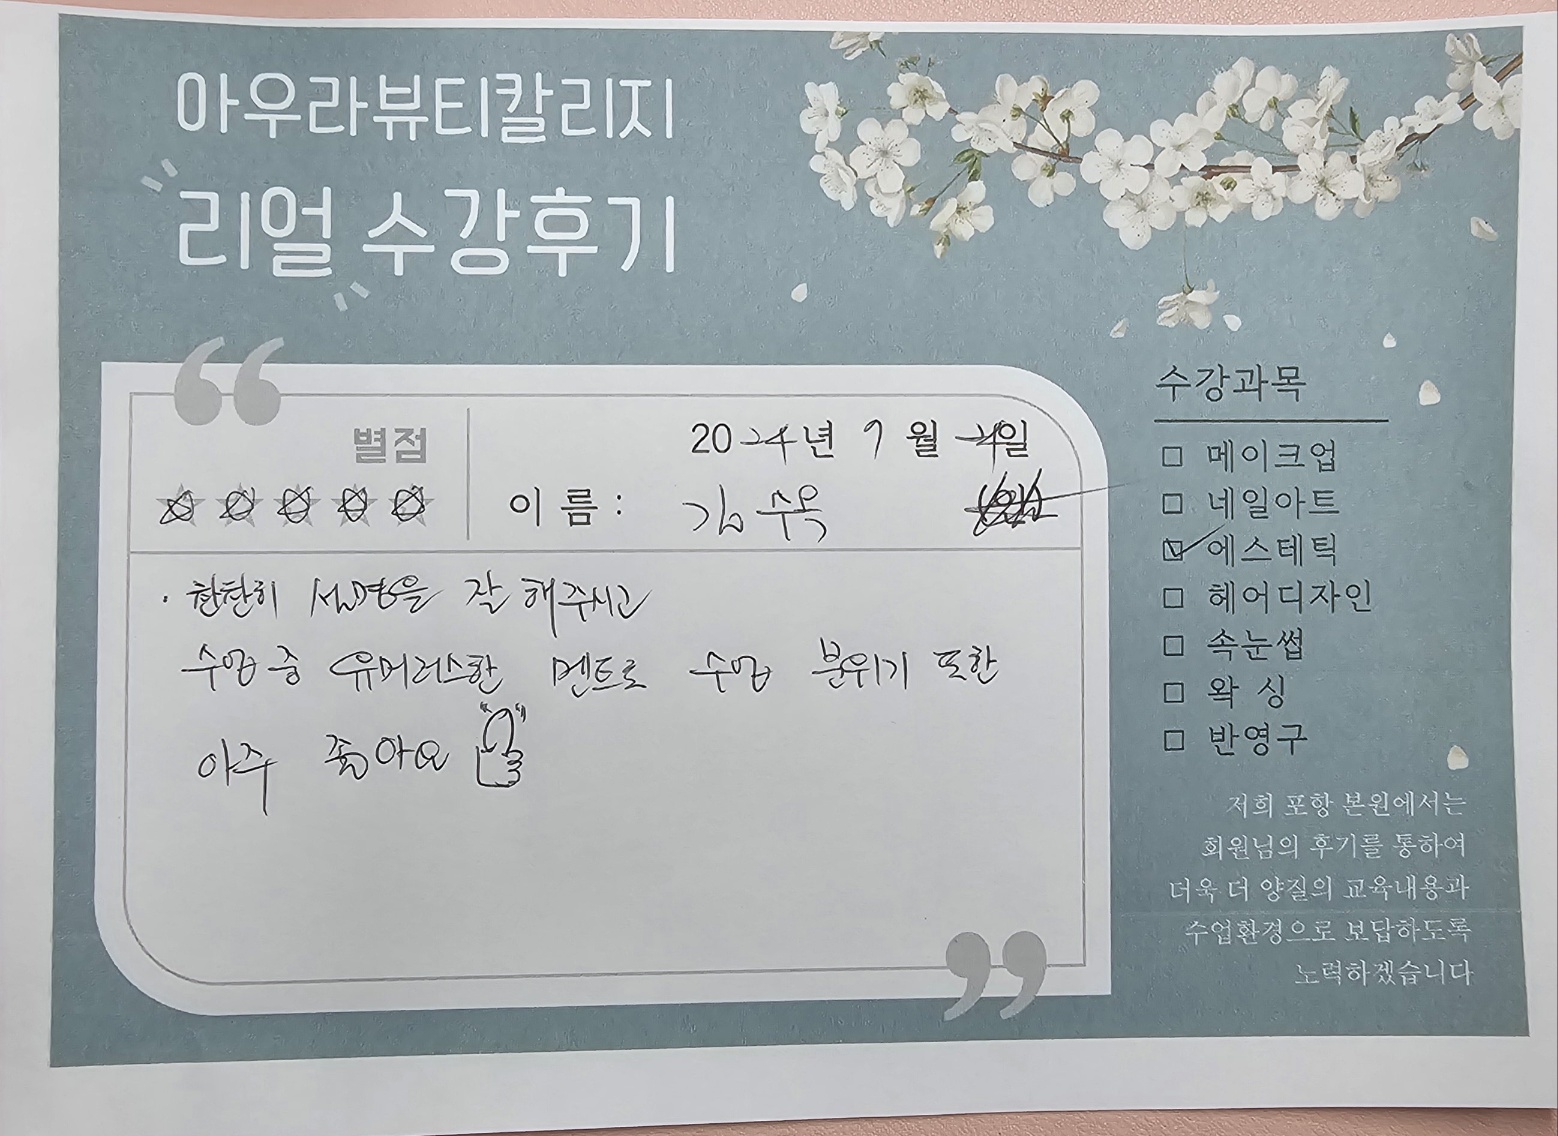 아우라뷰티칼리지
리얼 수강후기
별점
2024년 9월 24일
이름: 김수옥
· 찬찬히 설명을 잘 해주시고
수업 중 유머러스한 멘트로 수업 분위기 또한
아주 좋아요
수강과목
□ 메이크업
□ 네일아트
☑ 에스테틱
□ 헤어디자인
□ 속눈썹
□ 왁싱
□ 반영구
저희 포항 본원에서는
회원님의 후기를 통하여
더욱 더 양질의 교육내용과
수업환경으로 보답하도록
노력하겠습니다